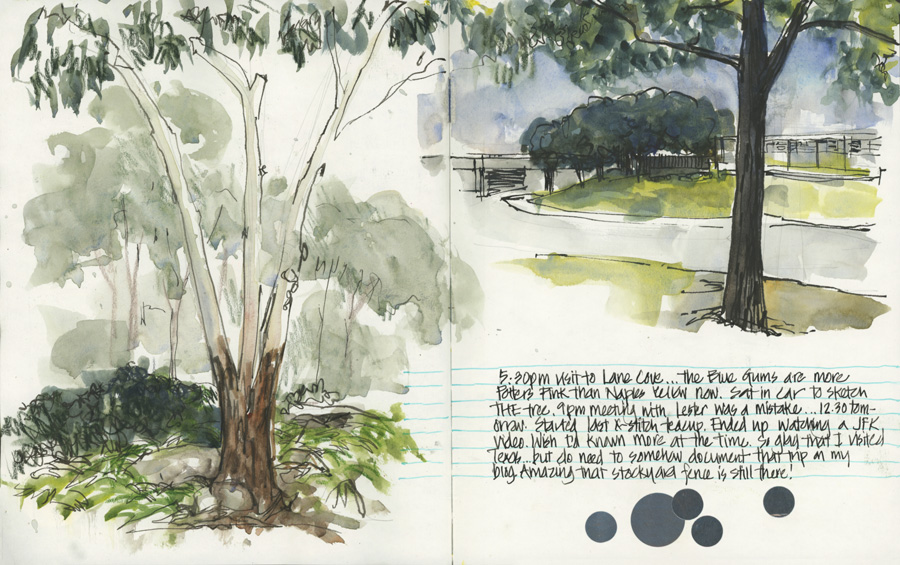 5.30pm visit to Lane Cove...the Blue Gums are more
Potters Pink than Naples Yellow now. Sat in car to sketch
THE tree. 9pm meeting with Lester was a mistake...12.30 tom-
orrow. Started last x-stitch teacup. Ended up watching a JFK
video. Wish I'd known more at the time. So glad that I visited
Texas...but do need to somehow document that trip on my
blog. Amazing that stockyard fence is still there!